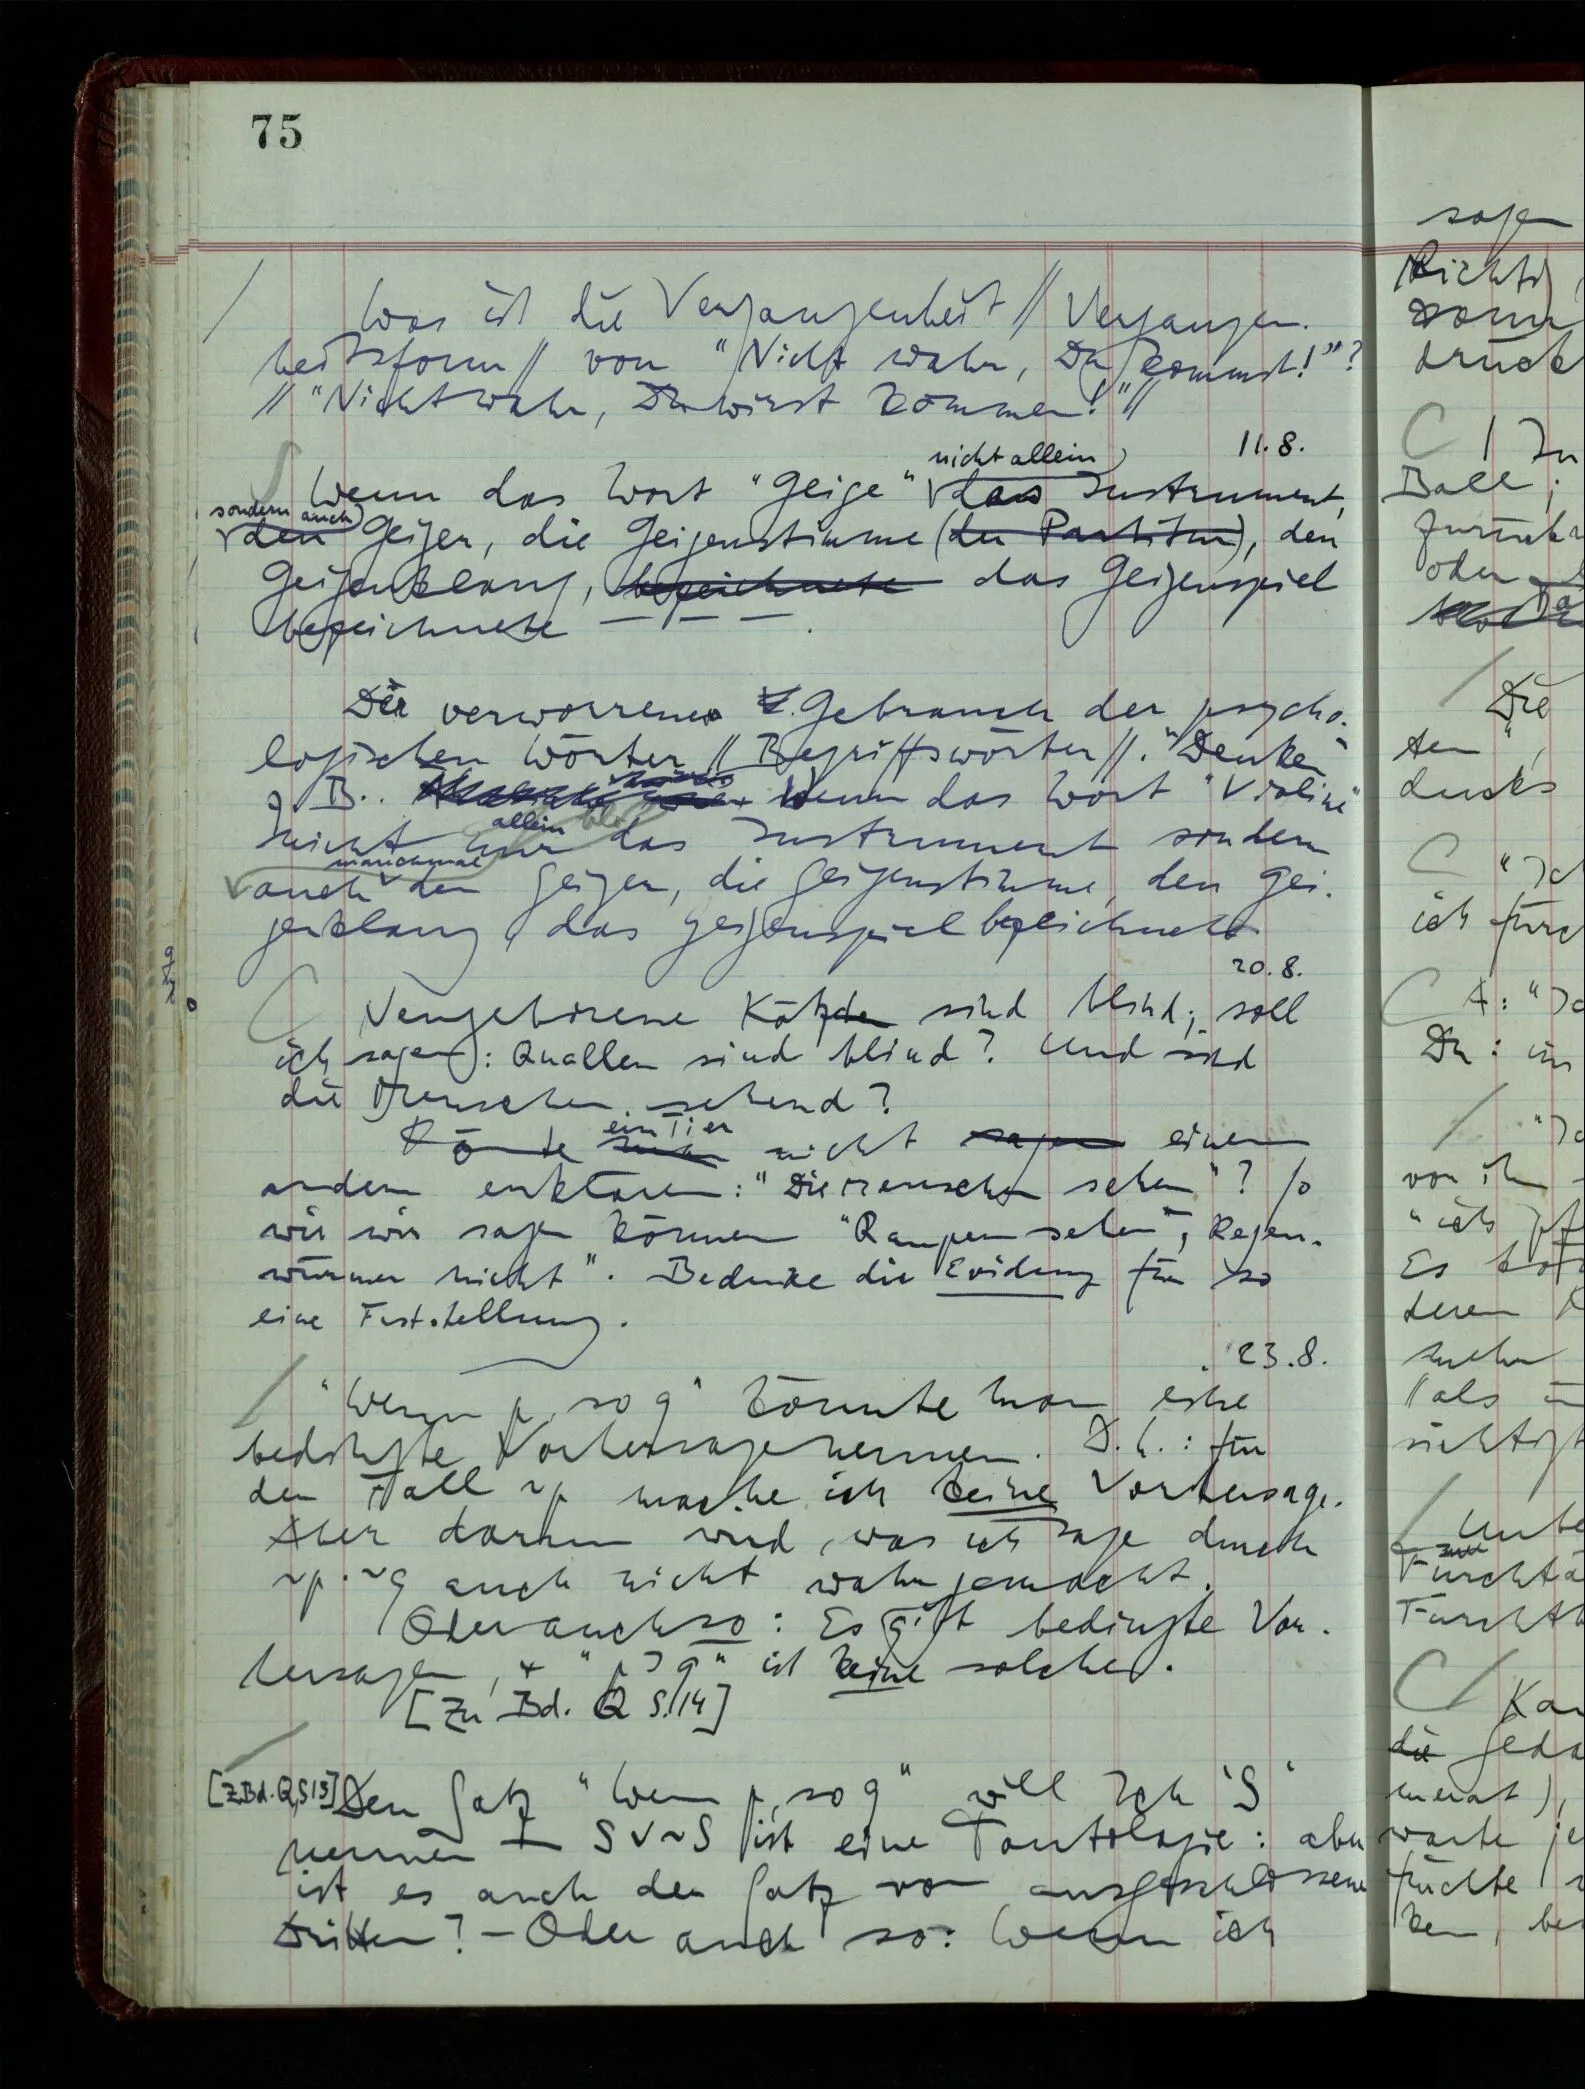 75
/ Was ist die Vergangenheit // Vergangen-
heitsform // von "Nicht wahr, Du kommst!"?
// "Nicht wahr, Du wirst kommen!" //
11.8.
nicht allein
Wenn das Wort "Geige" das Instrument,
sondern auch
den Geiger, die Geigenstimme (der Partitur), den
Geigenklang, bezeichnete das Geigenspiel
bezeichnete — — — .
Der verworrene Gebrauch der psycho-
logischen Wörter // Begriffswörter //. "Denken"
z.B.. Wenn das Wort "Violine"
allein
nicht nur das Instrument sondern
manchmal
auch den Geiger, die Geigenstimme, den Gei-
genklang, das Geigenspiel bezeichnet
20.8.
Neugeborene Katzen sind blind; soll
ich sagen: Quallen sind blind? Und sind
die Menschen sehend?
ein Tier
Könnte man nicht sagen einem
andern erklären: "Die Menschen sehen"? so
wie wir sagen können "Raupen sehen, Regen-
würmer nicht". Bedenke die Evidenz für so
eine Feststellung.
23.8.
/ "Wenn p, so q" könnte man eine
bedingte Vorhersage nennen. D.h.: für
den Fall ~p mache ich keine Vorhersage.
Aber darum wird, was ich sage durch
~p.~q auch nicht wahr gemacht.
Oder auch so: Es gibt bedingte Vor-
hersagen, + "p⊃q" ist keine solche.
[Zu Bd. Q S.14]
[Z.Bd.Q,S13] Den Satz "Wenn p, so q" will ich 'S'
nennen — S∨~S ist eine Tautologie: aber
ist es auch der Satz vom ausgeschlossenen
Dritten? – Oder auch so: Wenn ich
sagen
drück
C / In
Ball;
zurück
oder
/ Die
C "Ich
ich fürc
C A: "Ic
Du: 
/ "Ic
von ih
Es
deren
// als
Furcht
C/ Kan
die Geda
meint),
warte je
ken, be